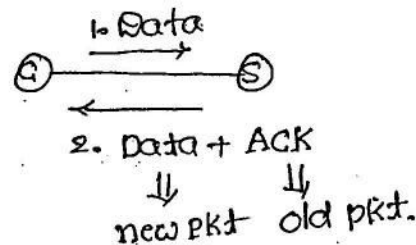 1. Data
C S
2. Data + ACK
⇓ ⇓
new pkt old pkt.